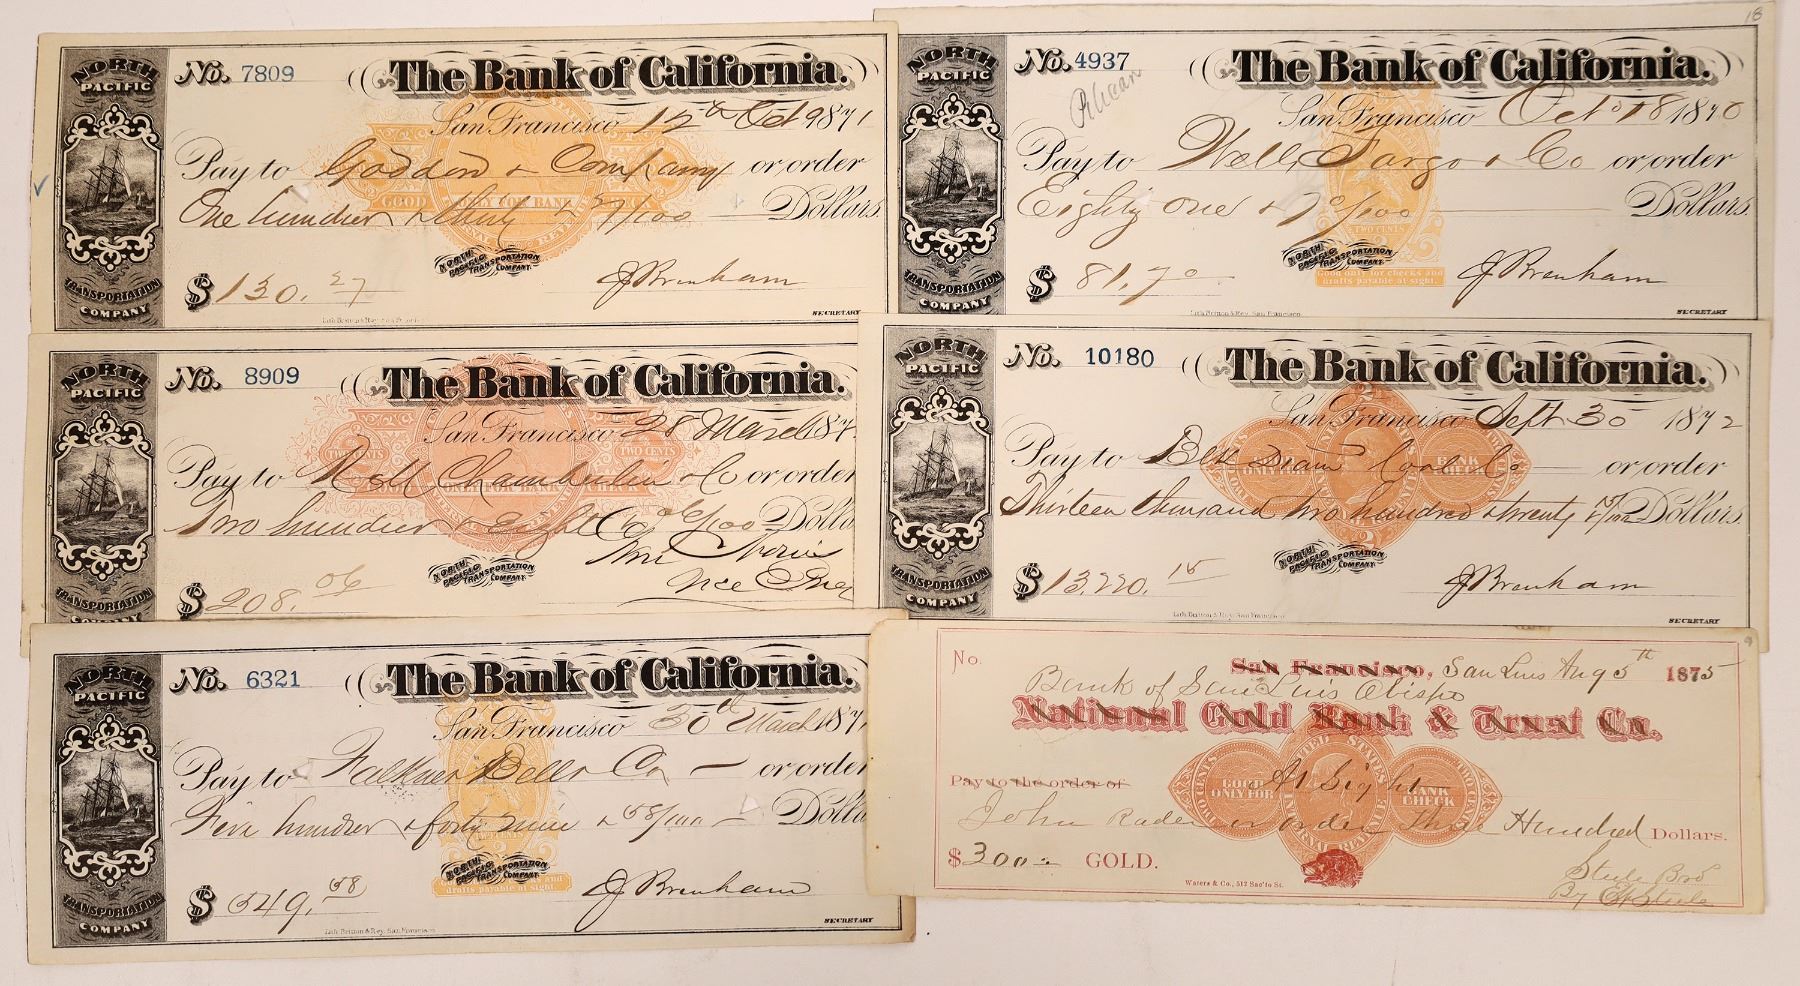 NORTH
PACIFIC
TRANSPORTATION
COMPANY
No. 7809
The Bank of California.
San Francisco 12th Oct 1871
Pay to Goddard & Company or order
One hundred & thirty & 27/100 Dollars.
GOOD ONLY FOR BANK CHECK
NORTH PACIFIC TRANSPORTATION COMPANY.
$ 130. 27
J Brenham
SECRETARY
Lith Britton & Rey San Francisco
18
NORTH
PACIFIC
TRANSPORTATION
COMPANY
No. 4937
The Bank of California.
San Francisco Oct 18 1870
Pay to Wells Fargo & Co or order
Eighty one & 70/100 Dollars.
TWO CENTS
NORTH PACIFIC TRANSPORTATION COMPANY.
Good only for checks and
drafts payable at sight.
$ 81.70
J Brenham
Lith Britton & Rey. San Francisco
SECRETARY
NORTH
PACIFIC
TRANSPORTATION
COMPANY
No. 8909
The Bank of California.
San Francisco 28 March 187
TWO CENTS TWO CENTS
Pay to Chamberlin & Co or order
Two hundred & Eight 06/100 Dolla
NORTH PACIFIC TRANSPORTATION COMPANY.
Wm Norris
Vice Pres
$ 208. 06
NORTH
PACIFIC
TRANSPORTATION
COMPANY
No. 10180
The Bank of California.
San Francisco Sept 30 1872
Pay to Diam Coal Co or order
GOOD ONLY FOR BANK CHECK
Thirteen thousand two hundred & twenty 15/100 Dollars.
NORTH PACIFIC TRANSPORTATION COMPANY.
$ 13,220. 15
J Brenham
Lith Britton & Rey San Francisco
SECRETARY
NORTH
PACIFIC
TRANSPORTATION
COMPANY
No. 6321
The Bank of California.
San Francisco 30th March 187
Pay to Falkner Bell & Co or order
Five hundred & forty nine & 58/100 Dolla
TWO CENTS
NORTH PACIFIC TRANSPORTATION COMPANY.
drafts payable at sight.
$ 549. 58
J Brenham
Lith Britton & Rey. San Francisco
SECRETARY
9
No.
San Francisco, San Luis Aug 5th 1875
Bank of San Luis Obispo
National Gold Bank & Trust Co.
Pay to the order of At Sight
UNITED STATES INTERNAL REVENUE
GOOD ONLY FOR BANK CHECK
John Rader or order Three Hundred Dollars.
$ 300 GOLD.
Waters & Co., 512 Sac'to St.
Steele Bros
By E W Steele